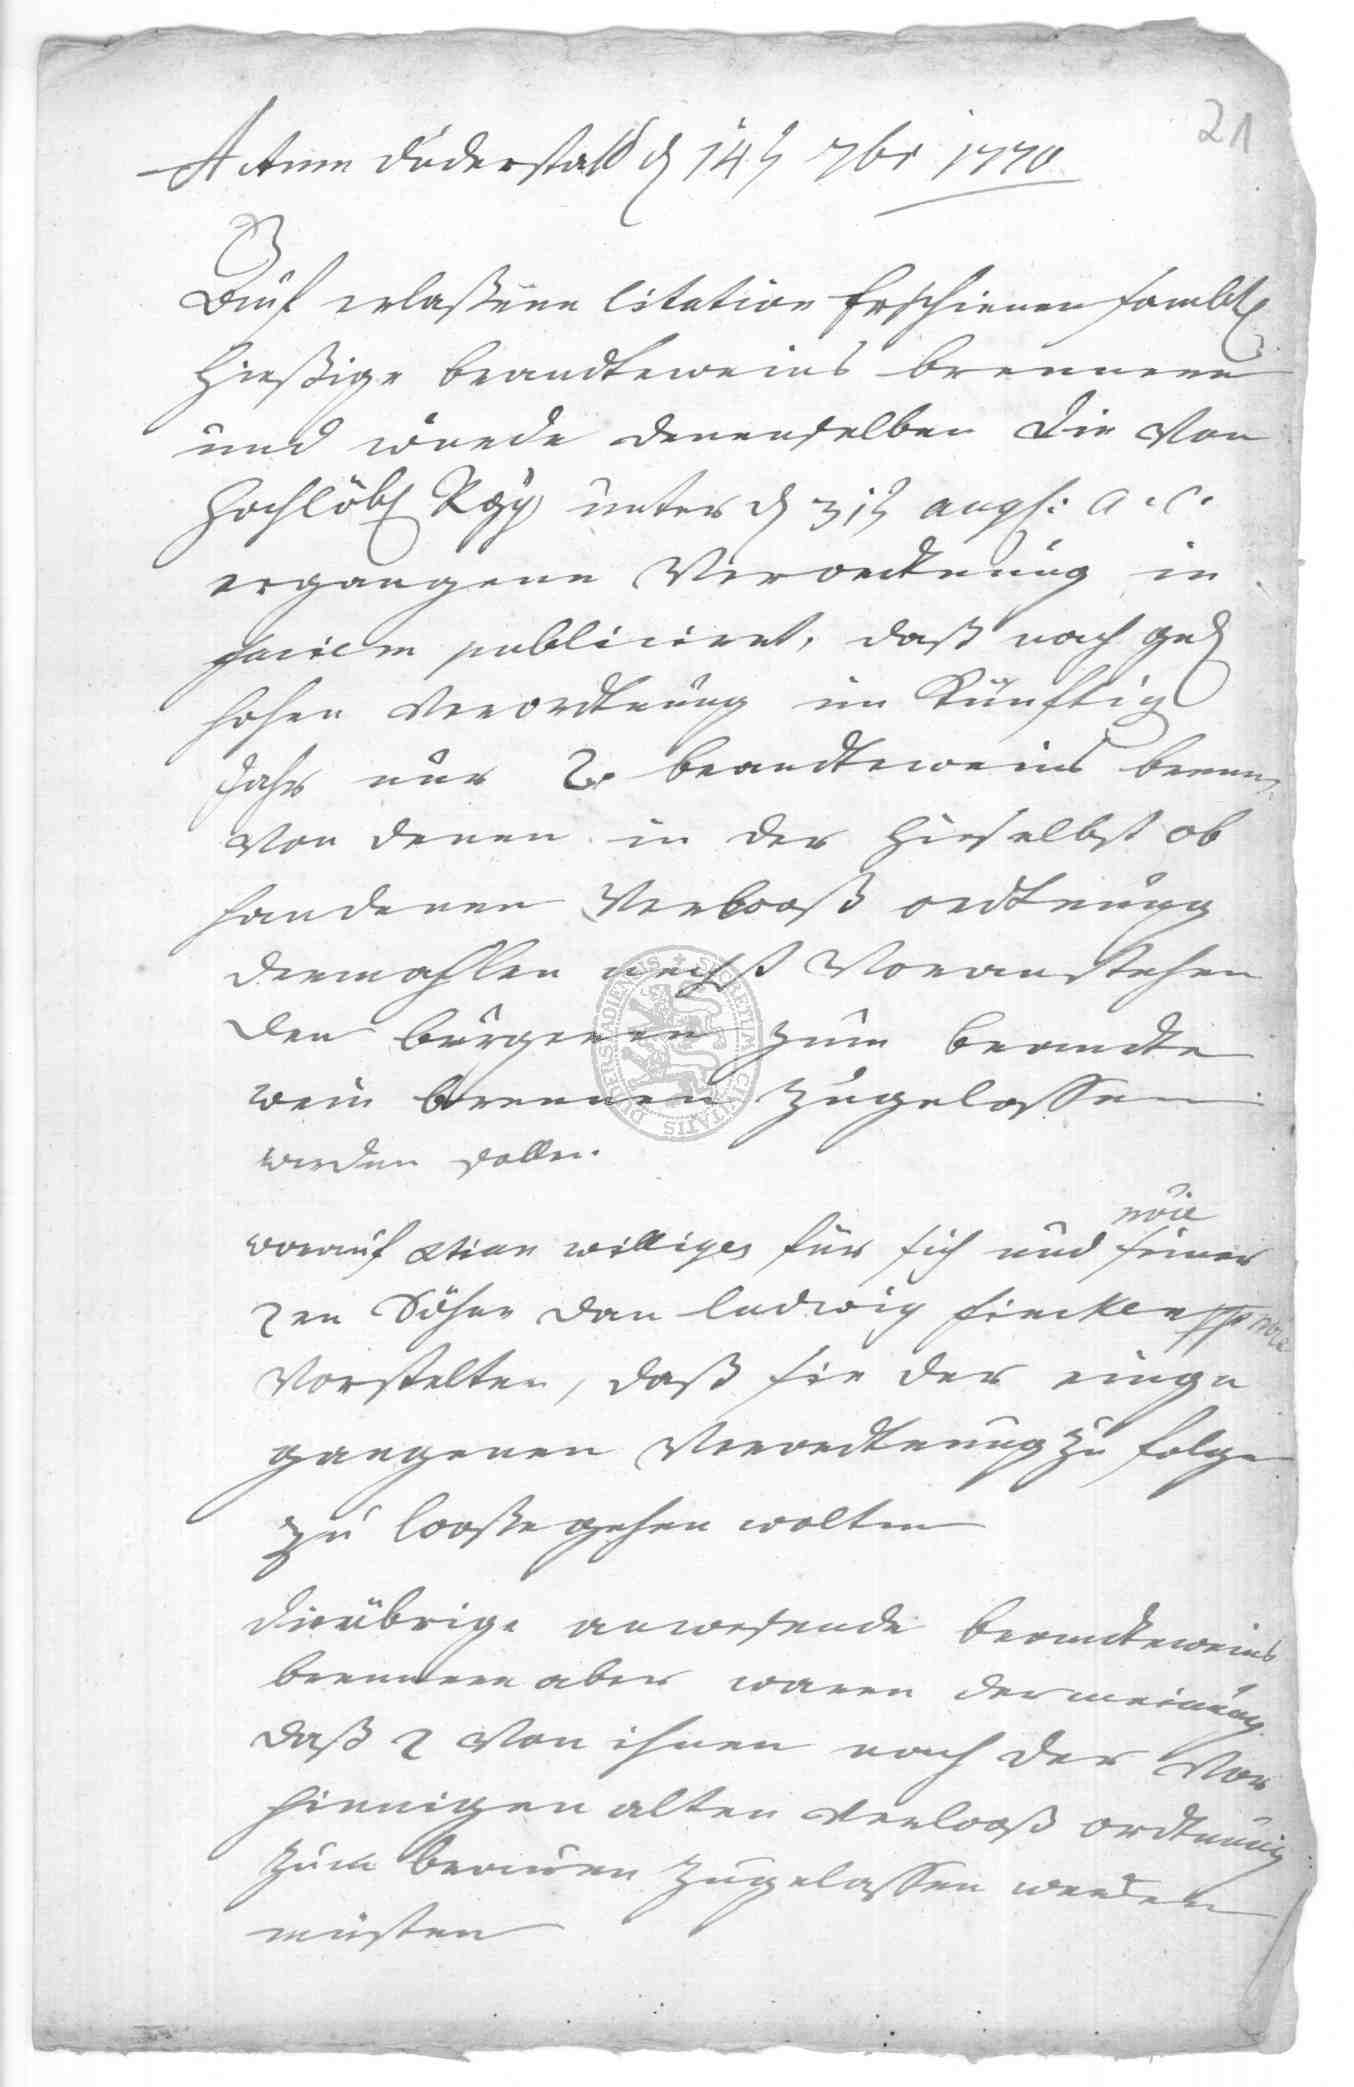 21
Actum Duderstadt d 14t 7br 1770
Auf erlaßene Citation Erschienen sambtl
hießige brandteweins brennere
und wurde denenselben die Von
Hochlöbl Rgg unter d 31t augst: a. c.
ergangene Verordtnung in
faciem publiciret, daß nach gnd
hohen Verordtnung im Künftig
Jahr nur 2 brandteweins brenn:
Von denen in der hieselbst ob
handenen Verlooß ordtnung
dermahlen nechst Voranstehen
den bürgeren zum brandte
wein brennen zugelassen
werden sollen.
worauf williges für sich und seiner
noie
2en Söhne dan ludwig fincken
Vorstelten, daß sie der einge
gangenen Verordtnung zu folge
zu looße gehen wolten
die übrige anwesende brandteweins
brennere aber waren der meinung
daß 2 Von ihnen nach der Vor
hinnigen alten Verlooß ordtnung
zum brennen zugelassen werden
müsten
SECRETUM CIVITATIS DUDERSTADIENSIS